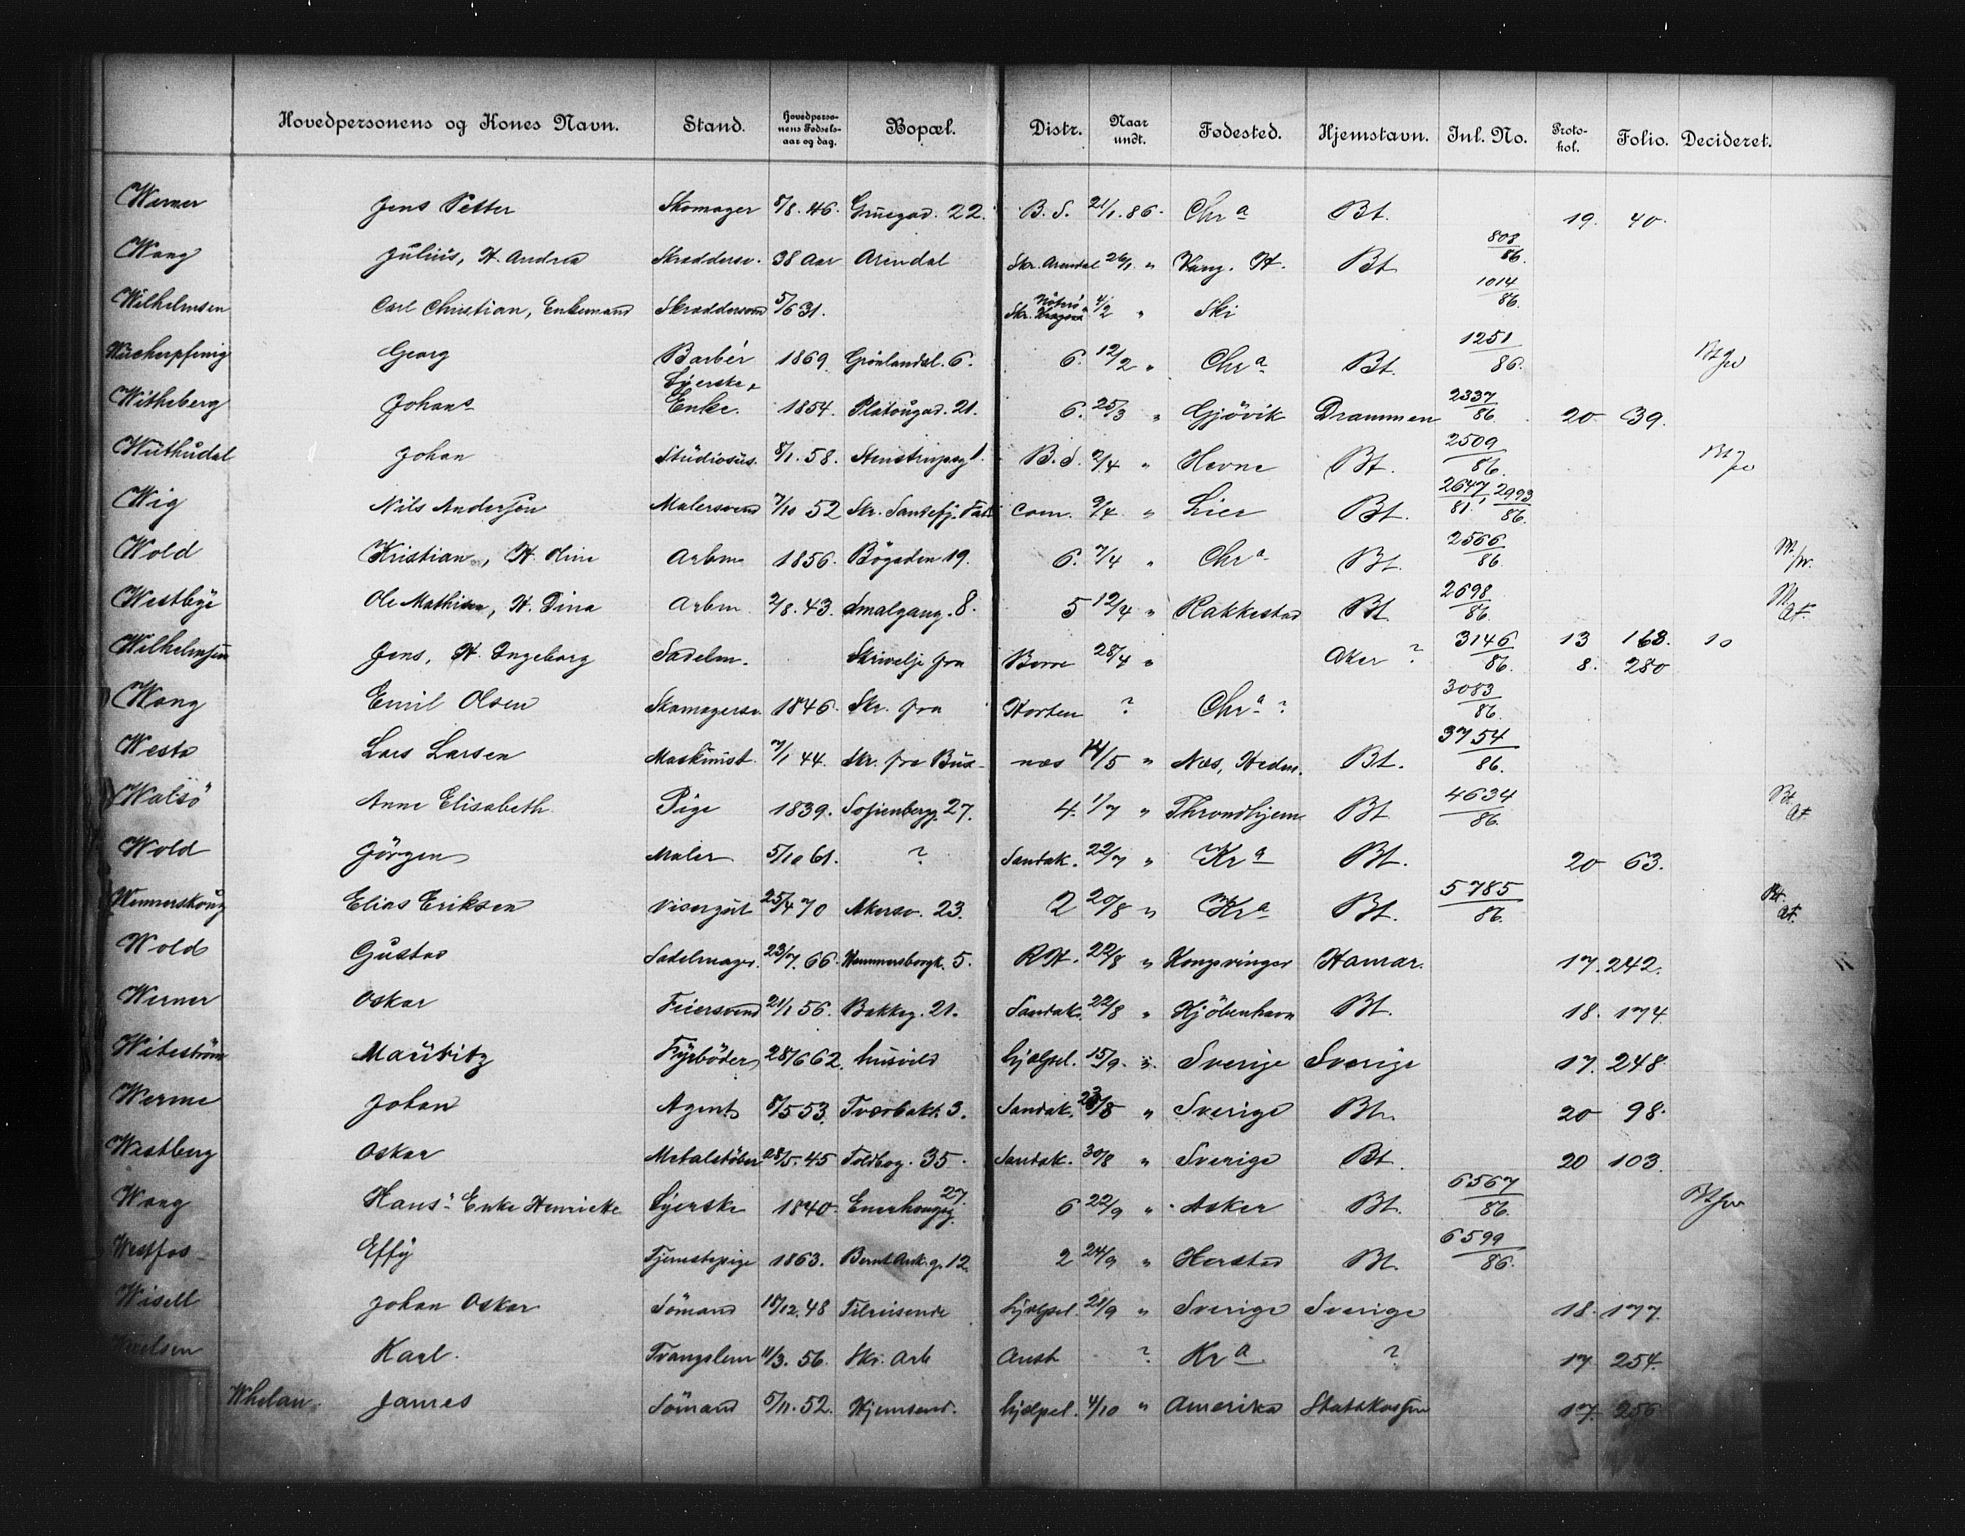 Hovedpersonens og Kones Navn. Stand. Hovedpersonens Fødselsaar og dag. Bopæl. Distr. Naar undt. Fødested. Hjemstavn. Inl. No. Protokol. Folio. Decideret.
Werner Jens Petter Skomager 5/8. 46. Gruegad. 22. B. S. 21/1. 86. Chr a Bt. 19. 40.
Wang Julius, H. Andrea Skræddersv. 38 Aar Arendal Skr. Arendal 26/1. " Vang. H. Bt 803/86.
Wilhelmsen Carl Christian, Enkemand Skræddersvend 5/6 31. Skr. Nøterø 4/2 " Ski 1014/86.
Wücherpfenig Georg Barbér 1869. Grønlandsl. 6. 6. 12/2 " Chr a Bt. 1251/86.
Witheberg Johans Syerske, Enke. 1854. Platougad. 21. 6. 25/3 " Gjövik Drammen 2337/86. 20 39.
Wuthudal Johan Studiosus. 8/1. 58. Stenstrupsg 1. B. S. 2/4 " Hevne Bt. 2509/86.
Wig Nils Andersen Malersvend 7/10 52 Skr. Sandefj. com. 9/4 " Lier Bt. 2647/81, 2993/86.
Wold Kristian, H. Oline Arbm 1856. Bögaden 19. 6. 7/4 " Chr a Bt. 2566/86.
Westbye Ole Mathisen, H. Dina Arbm 2/8. 43. Smalgang. 8. 5 12/4 " Rakkestad Bt 2698/86. M. At.
Wilhelmsen Jens, H. Ingeborg Sadelm. Skrivelse fra Borre 28/4 " Aker ? 3146/86. 13 168. 10
8. 280
Wang Emil Olsen Skomagersv. 1846. Skr. fra Horten ? Chr a ? 3083/86.
Westa Lars Larsen Maskinist. 7/1 44. Skr. fra Bus- næs 14/5 " Næs, Hedm. Bt. 3754/86.
Watsö Anne Elisabeth Pige 1839. Sofienbergg. 27. 4. 1/7 " Throndhjem Bt 4634/86. Bt. At.
Wold Görgen Maler 5/10 61. ? Sandak. 22/7 " Kr a Bt. 20 63.
Wennerskoug Elias Eriksen Visergut 25/4 70 Akersv. 23. 2 20/8 " Kr a Bt. 5785/86. Bt. At.
Wold Gustav Sadelmager. 23/7. 66. Hammersborgt. 5. RH. 22/8 " Kongsvinger Hamar. 17. 242.
Werner Oskar Feiersvend 21/1 56. Bakkeg. 21. Sandak. 22/8 " Kjöbenhavn Bt. 18. 174.
Witeström Mauritz Fyrböder 28/6 62. husvild hjælpel. 15/9. " Sverige Sverige 17. 248.
Werme Johan Agent 8/5 53. Tværbakk. 3. Sandak. 23/8 " Sverige Bt. 20 98.
Westberg Oskar Metalstöber 28/5. 45 Toldbog. 35. Sandak. 30/8 " Sverige Bt. 20 103.
Wang Hans' Enke Henrikke Syerske 1840. Enerhougsg. 27. 6 22/9 " Asker Bt. 6567/86.
Westfos Effy Tjenestepige 1863. Bernt Ank. g. 12. 2 24/9 " Bt. 6599/86.
Wisell Johan Oskar Sömand 18/12. 48 Tilreisende hjælpel. 21/9 " Sverige Sverige 18. 177.
Karl. Tvangslem 11/3. 56. Skr. Arb Anst ? Kr a ? 17 254.
Whelan. James Sömand 5/11. 52. Hjemsend. hjælpel. 4/10 " Amerika Statskassen 17. 256